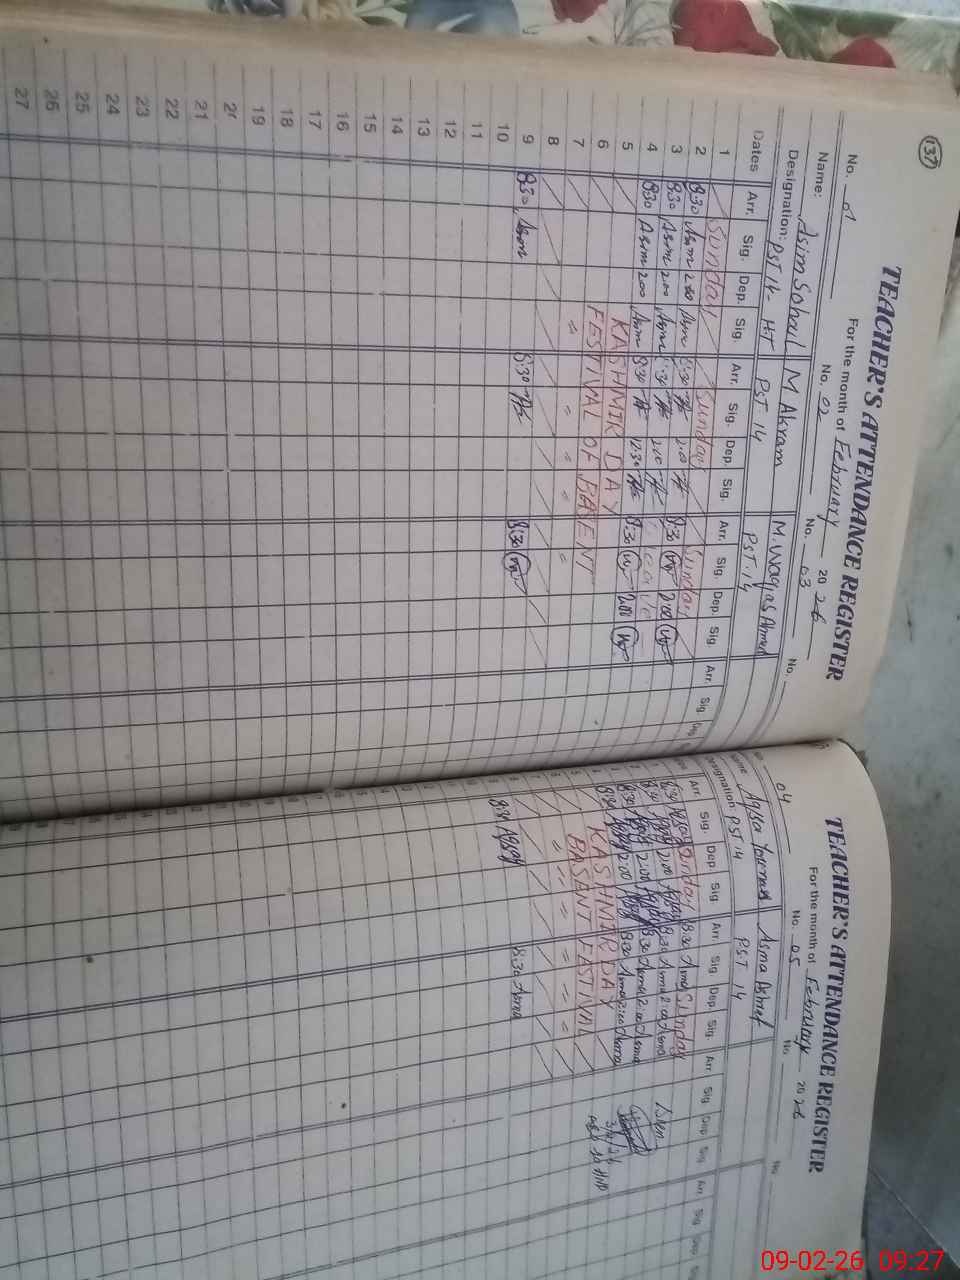 (137)
TEACHER'S ATTENDANCE REGISTER
For the month of February 2026
No. 01 No. 02 No. 03 No.
Name: Asim Sohail M Akram M. Waqas Ahmed
Designation: PST 14- HT PST 14 PST. 14
Dates Arr. Sig. Dep. Sig. Arr. Sig. Dep. Sig. Arr. Sig. Dep. Sig. Arr. Sig. Dep.
1 Sunday Sunday Sunday
2 8:30 Asim 2:00 Asim 8:30 2:00 8:30 2:00
3 8:30 Asim 2:00 Asim 8:30 2:00 Leave
4 8:30 Asim 2:00 Asim 8:30 12:30 8:30 2:00
5 KASHMIR DAY
6 FESTIVAL OF BASENT
7 " " " " "
8
9 8:30 Asim 8:30 8:30
10
11
12
13
14
15
16
17
18
19
20
21
22
23
24
25
26
27
TEACHER'S ATTENDANCE REGISTER
For the month of February 2026
04 No. 05 No. No.
Name Aqsa Asma Ashraf
Designation: PST 14 PST 14
Arr. Sig. Dep. Sig Arr. Sig. Dep Sig. Arr Sig Dep Sig Arr. Sig Dep Sig
Sunday Sunday
8:30 2:00 8:30 Asma 2:00 Asma
8:30 2:00 8:30 Asma 2:00 Asma
8:30 2:00 8:30 Asma 2:00 Asma
KASHMIR DAY
BASANT FESTIVAL
" " " " "
8:30 Aqsa 8:30 Asma
09-02-26 09:27